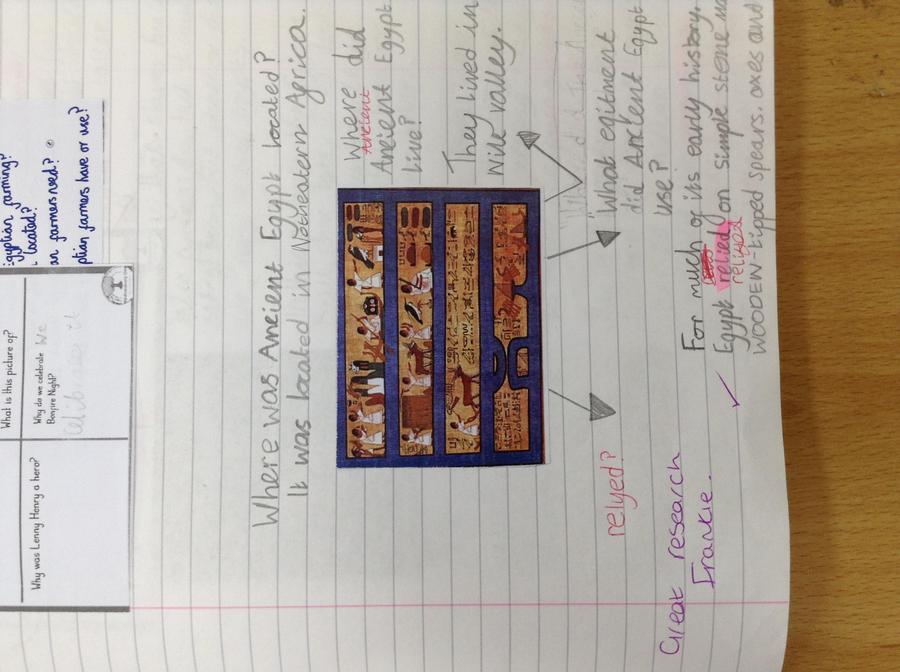 What is this picture of?
Why do we celebrate We
Bonfire Night?
Why was Lenny Henry a hero?
gyptian farming?
located?
farmers need?
ptian farmers have or use?
Where was Ancient Egypt located?
It was located in Notheatern Agrica.
Where did
Ancient
Ancient Egypt
live?
They lived in
Nile valley.
What eqitment
did Ancient Egypt
use?
relyed?
For much of its early history.
Egypt relied on simple stone
relied
WOODEN-tipped spears. axes and
Great research
Frankie.